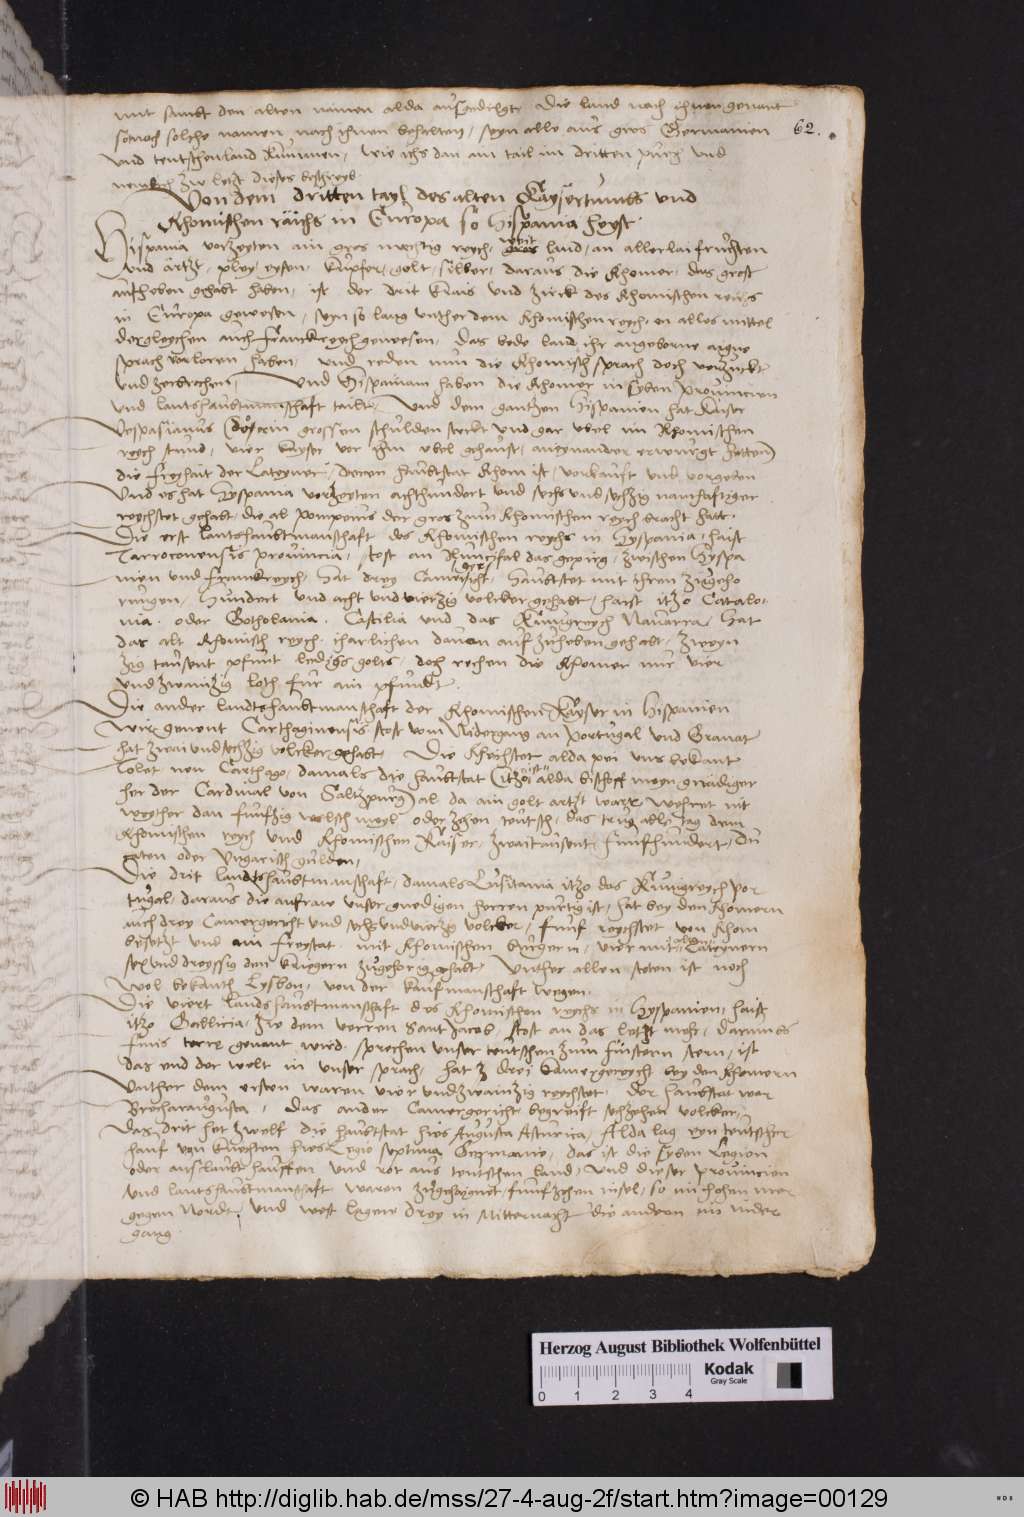 mit sambt den alten namen alda ausgedilgt. Die land nach ihnen genant
sonach solche namen nach ihnen behalten, seyn alle aus gros Germanien 62.
und teutschenland kummen, wie ichs dan am tail im dritten puech und
zu letzt dieses beschreyb
Von dem dritten tayl des alten Kaysertumbs und
Rhomischen räichs in Europa so Hispania heyst.
Hispania vorzeyten ain gros mechtig reych, weit land, an allerlai fruchten
und ärtzt, pley, eysen, kupfer, golt, silber, daraus die Rhomer das grost
aufheben gehabt haben, ist der drit krais und zirck des Rhomischen reichs
in Europa gewesen, seyn so lang unther dem Rhomischen reych, on alles mittel
dergleychen auch Franckreych gewesen, das bede land ihr angeborne aigne
sprach verloren haben, und reden nun die Rhomisch sprach doch verzuckt
und zerbrochen, Und Hispaniam haben die Rhomer in siben Provincien
und lantshaubtmanschaft tailt, Und dem gantzen Hispanien hat Kaiser
Vespasianus (do er in grossen schulden steckt und gar ubel im Rhomischen
reych stund, vier kayser vor ihm ubel gehaust, aneynander erwurgt hetten)
die freyhait der Lateyner, deren haubtstat Rhom ist, verkauft und vergeben
Und es hat Hyspania vorzeyten achthundert und sechs und sechzig namhaftiger
reychstet gehabt, die al Pompeius der gros zum Rhomischen reych bracht hatt.
Die erst lantshaubtmanschaft des Rhomischen reychs in Hyspania, haist
Tarroconensis provincia, stost an Runcifal das gepirg, zwischen Hyspa
nien und Franckreych, Hat drey Camergericht, haubtstet mit ihren zugeho
rungen, Hundert und acht und vierzig volcker gehabt, haist itzo Cattalo,
nia, oder Gotholania, Castilia und das Kunigreych Navarra, Hat
das alt Rhomisch reych, iharlichen davon auf zuheben gehabt, zweyn
zig tausent pfunt ledigs golts, doch rechen die Rhomer nur vier
und zwainzig loth fur ain pfundt.
Die ander landtshaubtmanschaft der Rhomischen Kayser in Hispanien
wirt genent Carthaginensis stost vom Nidergang an Portugal und Granat
hat zwai und sechzig volcker gehabt Die Reichstet alda pei uns bekant
Tolet neu Carthago, damals die haubtstat (itzo ist alda bischoff meyn gnädiger
her der Cardinal von Saltzpurg) al da ain golt artzt war weyter nit
weyther dan funfzig welsch meyl oder zehen teutsch, das trug alle tag dem
Rhomischen reych und Rhomischen Kaiser, zwaitausent funfhundert, Du
caten oder Ungarisch gulden,
Die drit landtshaubtmanschaft, damals Lusitania itzo das Kunigreych Por
tugal, daraus die anfrau unser gnedigen herren purtig ist, hat bey den Rhomern
auch drey Camergericht und sechs und vierzig volcker, funf reychstet von Rhom
besetzt und ain freystat mit Rhomischen burgern, vier mit alten Lateynern
sex und dreyssig den kriegern zugehorig gehabt, Unther allen steten ist noch
wol bekanth Lysbon, von der kaufmanschaft wegen.
Die viert landshaubtmanschaft des Rhomischen reychs in Hyspanien, haist
itzo Gallicia, zu dem verren Sant Jacob, stost an das letzt mehr, darumbs
finis terre genant wird, sprechen unser teutschen zum finstern stern, ist
das end der welt in unser sprach, hat 3 drei kamergereycht bey den Rhomern
Unther dem ersten waren vier und zwainzig reychstet, der haubtstat war
Bracharaugusta, Das ander Camergericht begreift sechzehen volcker,
Das drit het zwelf die haubtstat hies Augusta Asturica, Alda lag eyn teutscher
hauf von knechten hies Legio septima Germanie, das ist die siben Legion
oder auslaubthauffen und rot aus teutschen land, Und dieser provincien
und lantshaubtmanschaft waren zugehaignet, funfzehen insel, so im hohen mer
gegen Nordt, und west lagen drey in Mitternacht die andern im nider
gang
Herzog August Bibliothek Wolfenbüttel
Kodak
Gray Scale
0 1 2 3 4
© HAB http://diglib.hab.de/mss/27-4-aug-2f/start.htm?image=00129